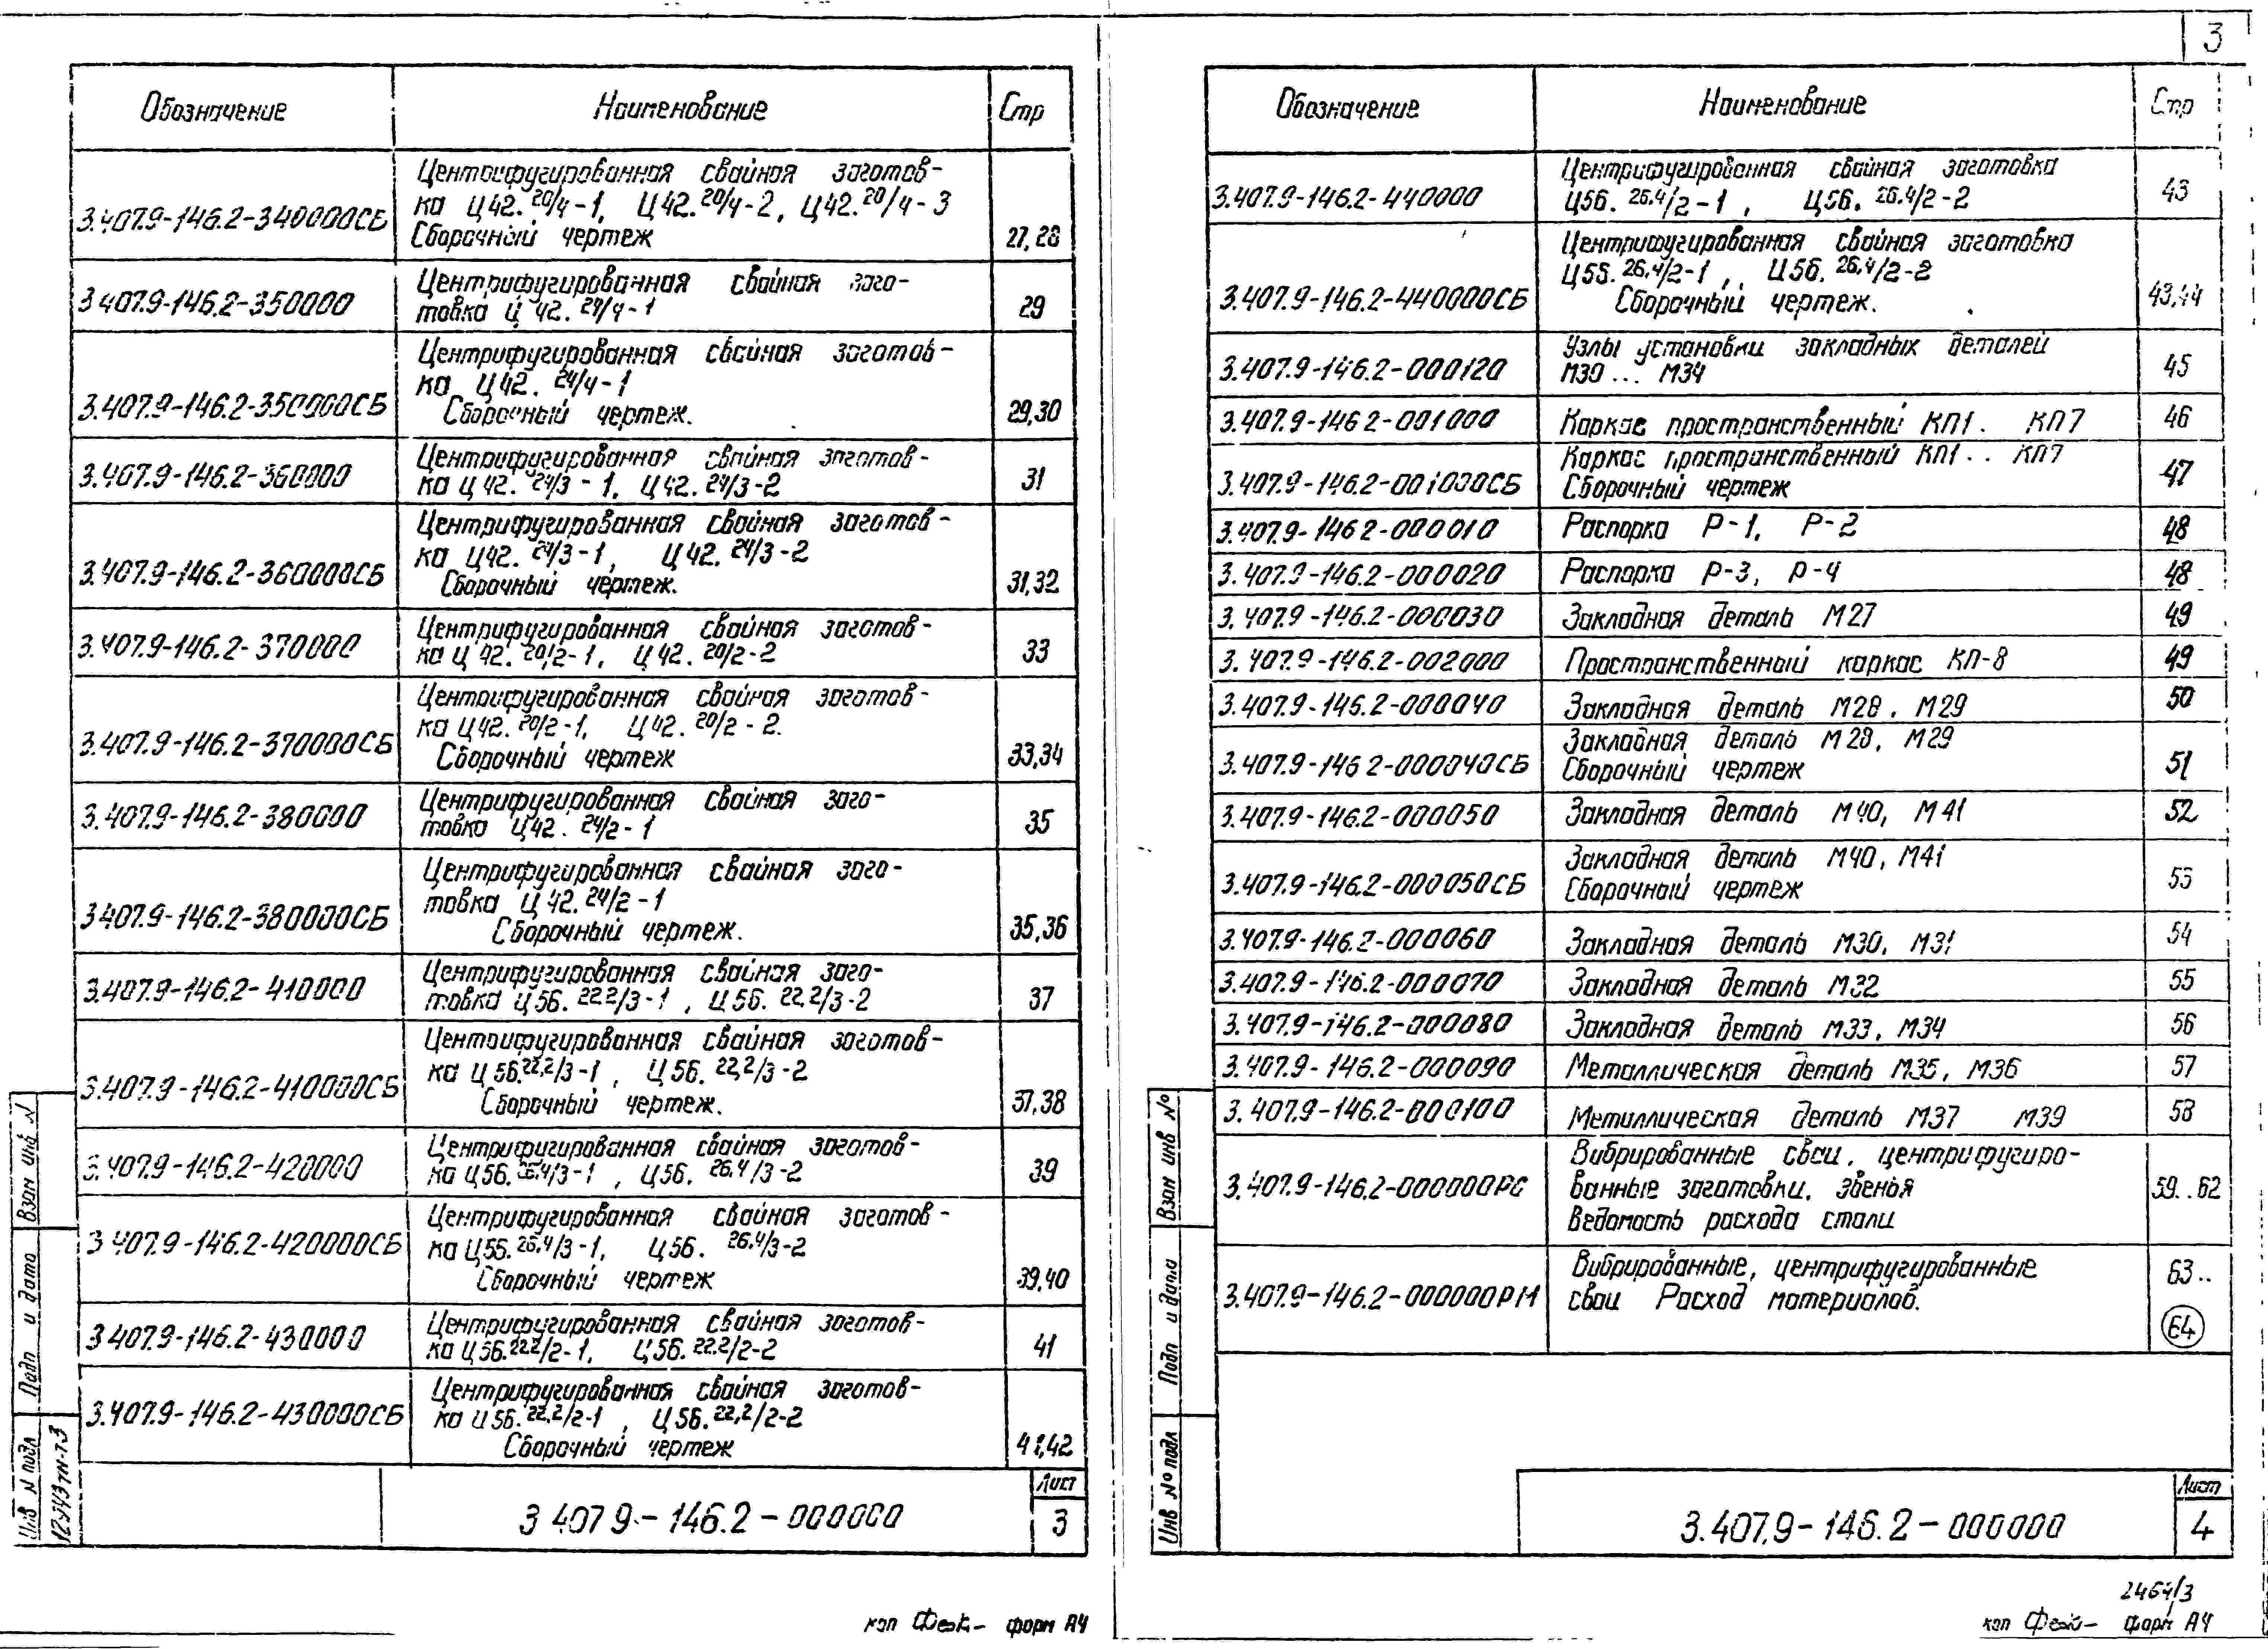 3
Обозначение Наименование Стр
Центрифугированная свайная заготов-
ка Ц42. 20/4-1, Ц42. 20/4-2, Ц42. 20/4-3
3.407.9-146.2-340000СБ Сборочный чертеж 27,28
Центрифугированная свайная заго-
3.407.9-146.2-350000 товка Ц 42. 24/4-1 29
Центрифугированная свайная заготов-
ка Ц42. 24/4-1
3.407.9-146.2-350000СБ Сборочный чертеж. 29,30
Центрифугированная свайная заготов-
3.407.9-146.2-360000 ка Ц 42. 24/3-1, Ц42. 24/3-2 31
Центрифугированная свайная заготов-
ка Ц42. 24/3-1, Ц42. 24/3-2
3.407.9-146.2-360000СБ Сборочный чертеж. 31,32
Центрифугированная свайная заготов-
3.407.9-146.2-370000 ка Ц 42. 20/2-1, Ц 42. 20/2-2 33
Центрифугированная свайная заготов-
ка Ц42. 20/2-1, Ц42. 20/2-2.
3.407.9-146.2-370000СБ Сборочный чертеж 33,34
Центрифугированная свайная заго-
3.407.9-146.2-380000 товка Ц42. 24/2-1 35
Центрифугированная свайная заго-
товка Ц 42. 24/2-1
3.407.9-146.2-380000СБ Сборочный чертеж. 35,36
Центрифугированная свайная заго-
3.407.9-146.2-410000 товка Ц56. 22.2/3-1, Ц56. 22,2/3-2 37
Центрифугированная свайная заготов-
ка Ц56. 22,2/3-1, Ц56. 22,2/3-2
3.407.9-146.2-410000СБ Сборочный чертеж. 37,38
Центрифугированная свайная заготов-
3.407.9-146.2-420000 ка Ц56. 26.4/3-1, Ц56. 26.4/3-2 39
Центрифугированная свайная заготов-
ка Ц56. 26.4/3-1, Ц56. 26.4/3-2
3 407.9-146.2-420000СБ Сборочный чертеж 39,40
Центрифугированная свайная заготов-
3 407.9-146.2-430000 ка Ц56. 22.2/2-1, Ц56. 22.2/2-2 41
Центрифугированная свайная заготов-
ка Ц56. 22,2/2-1, Ц56. 22,2/2-2
3.407.9-146.2-430000СБ Сборочный чертеж 41,42
3 407 9-146.2-000000 Лист 3
Взам инв N
Подп и дата
Инв N подл
12943тм-т3
коп форм А4
Обозначение Наименование Стр
Центрифугированная свайная заготовка
3.407.9-146.2-440000 Ц56. 26.4/2-1, Ц56. 26.4/2-2 43
Центрифугированная свайная заготовка
Ц56. 26.4/2-1, Ц56. 26.4/2-2
3.407.9-146.2-440000СБ Сборочный чертеж. 43,44
Узлы установки закладных деталей
3.407.9-146.2-000120 М30... М34 45
3.407.9-146 2-001000 Каркас пространственный КП1. КП7 46
Каркас пространственный КП1.. КП7
3.407.9-146.2-001000СБ Сборочный чертеж 47
3.407.9-146 2-000010 Распорка Р-1, Р-2 48
3.407.9-146.2-000020 Распорка Р-3, Р-4 48
3.407.9-146.2-000030 Закладная деталь М27 49
3.407.9-146.2-002000 Пространственный каркас КП-8 49
3.407.9-146.2-000040 Закладная деталь М28, М29 50
Закладная деталь М28, М29
3.407.9-146 2-000040СБ Сборочный чертеж 51
3.407.9-146.2-000050 Закладная деталь М40, М41 52
Закладная деталь М40, М41
3.407.9-146.2-000050СБ Сборочный чертеж 53
3.407.9-146.2-000060 Закладная деталь М30, М31 54
3.407.9-146.2-000070 Закладная деталь М32 55
3.407.9-146.2-000080 Закладная деталь М33, М34 56
3.407.9-146.2-000090 Металлическая деталь М35, М36 57
3.407.9-146.2-000100 Металлическая деталь М37 М39 58
Вибрированные сваи, центрифугиро-
3.407.9-146.2-000000РС ванные заготовки, звенья 59..62
Ведомость расхода стали
Вибрированные, центрифугированные 63..
3.407.9-146.2-000000РМ сваи Расход материалов.
64
3.407.9-146.2-000000 Лист 4
Взам инв №
Подп и дата
Инв № подл
2464/3
коп форм А4